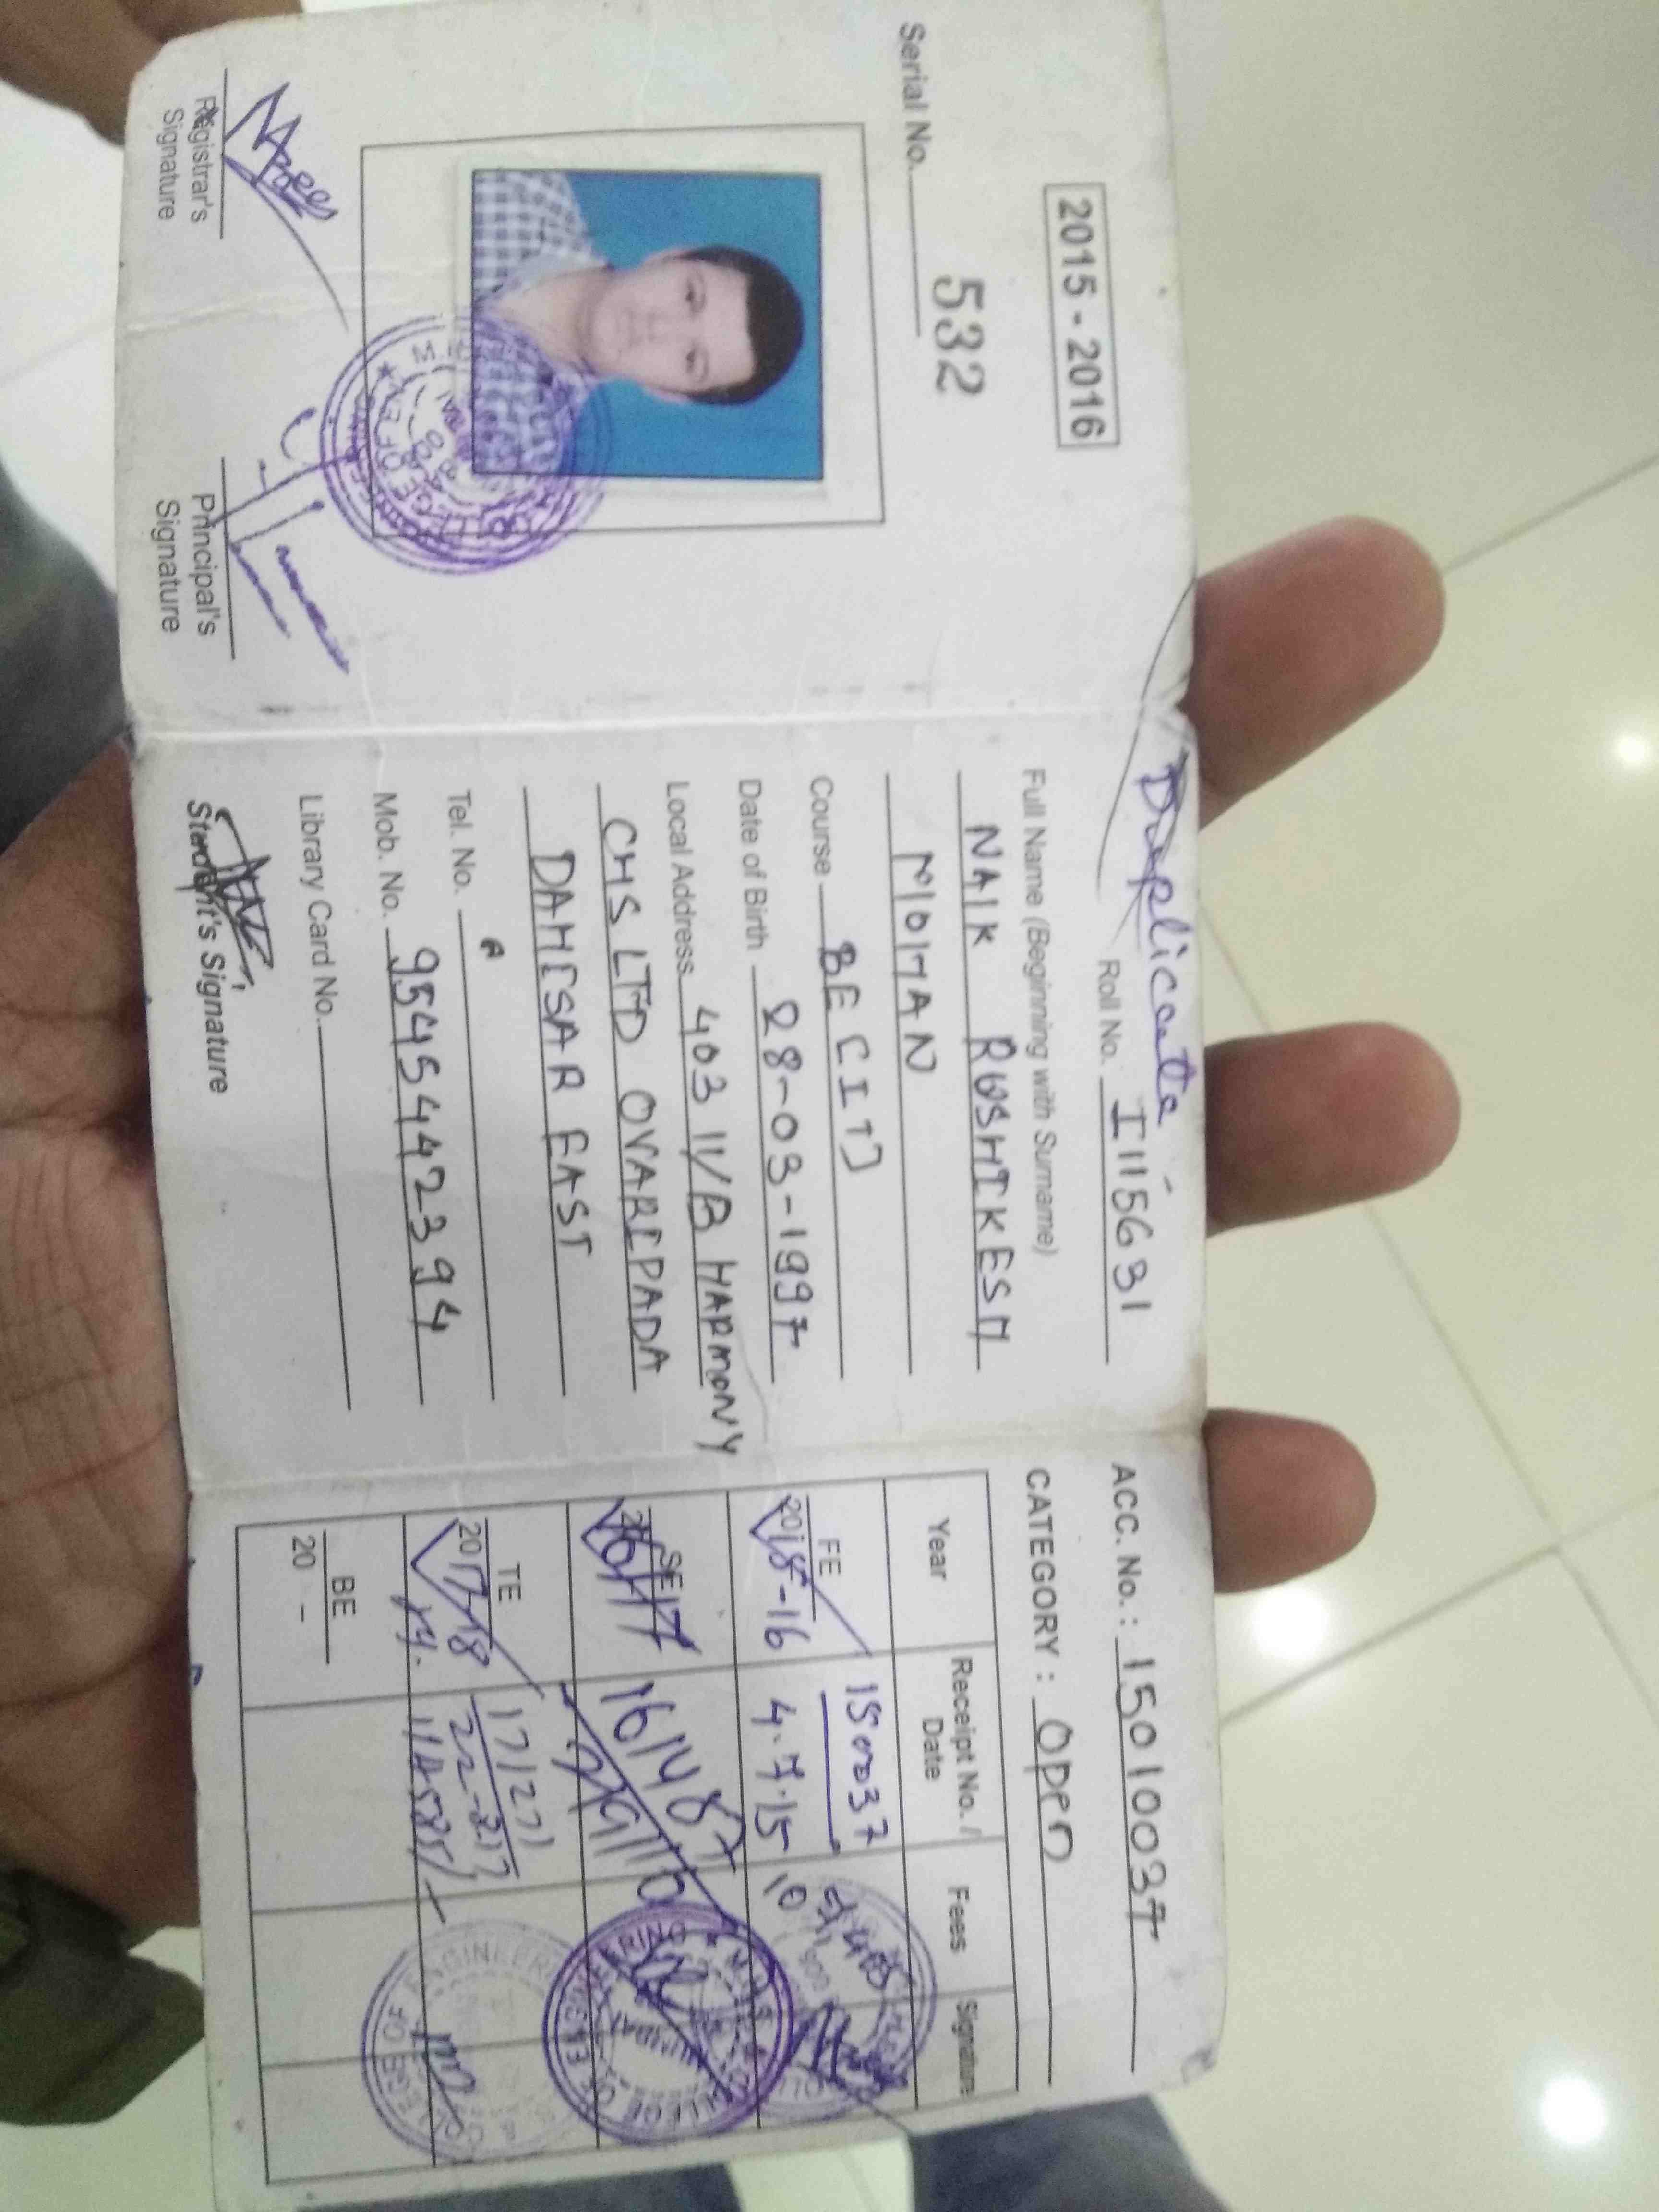 2015 - 2016
Serial No. 532
Registrar's
Signature
Principal's
Signature
Duplicate
Roll No. I115631
Full Name (Beginning with Surname)
NAIK RUSHIKESH
MOHAN
Course BE (IT)
Date of Birth 28-03-1997
Local Address 403 11/B HARMONY
CHS LTD OVARIPADA
DAHISAR EAST
Tel. No.
Mob. No. 9545442394
Library Card No.
Student's Signature
ACC. No. : 15010037
CATEGORY : Open
Year Receipt No. / Date Fees Signature
FE
2015-16 150037
4.7.15
SE
16/17
TE
2017/18 17/271
BE
20 -